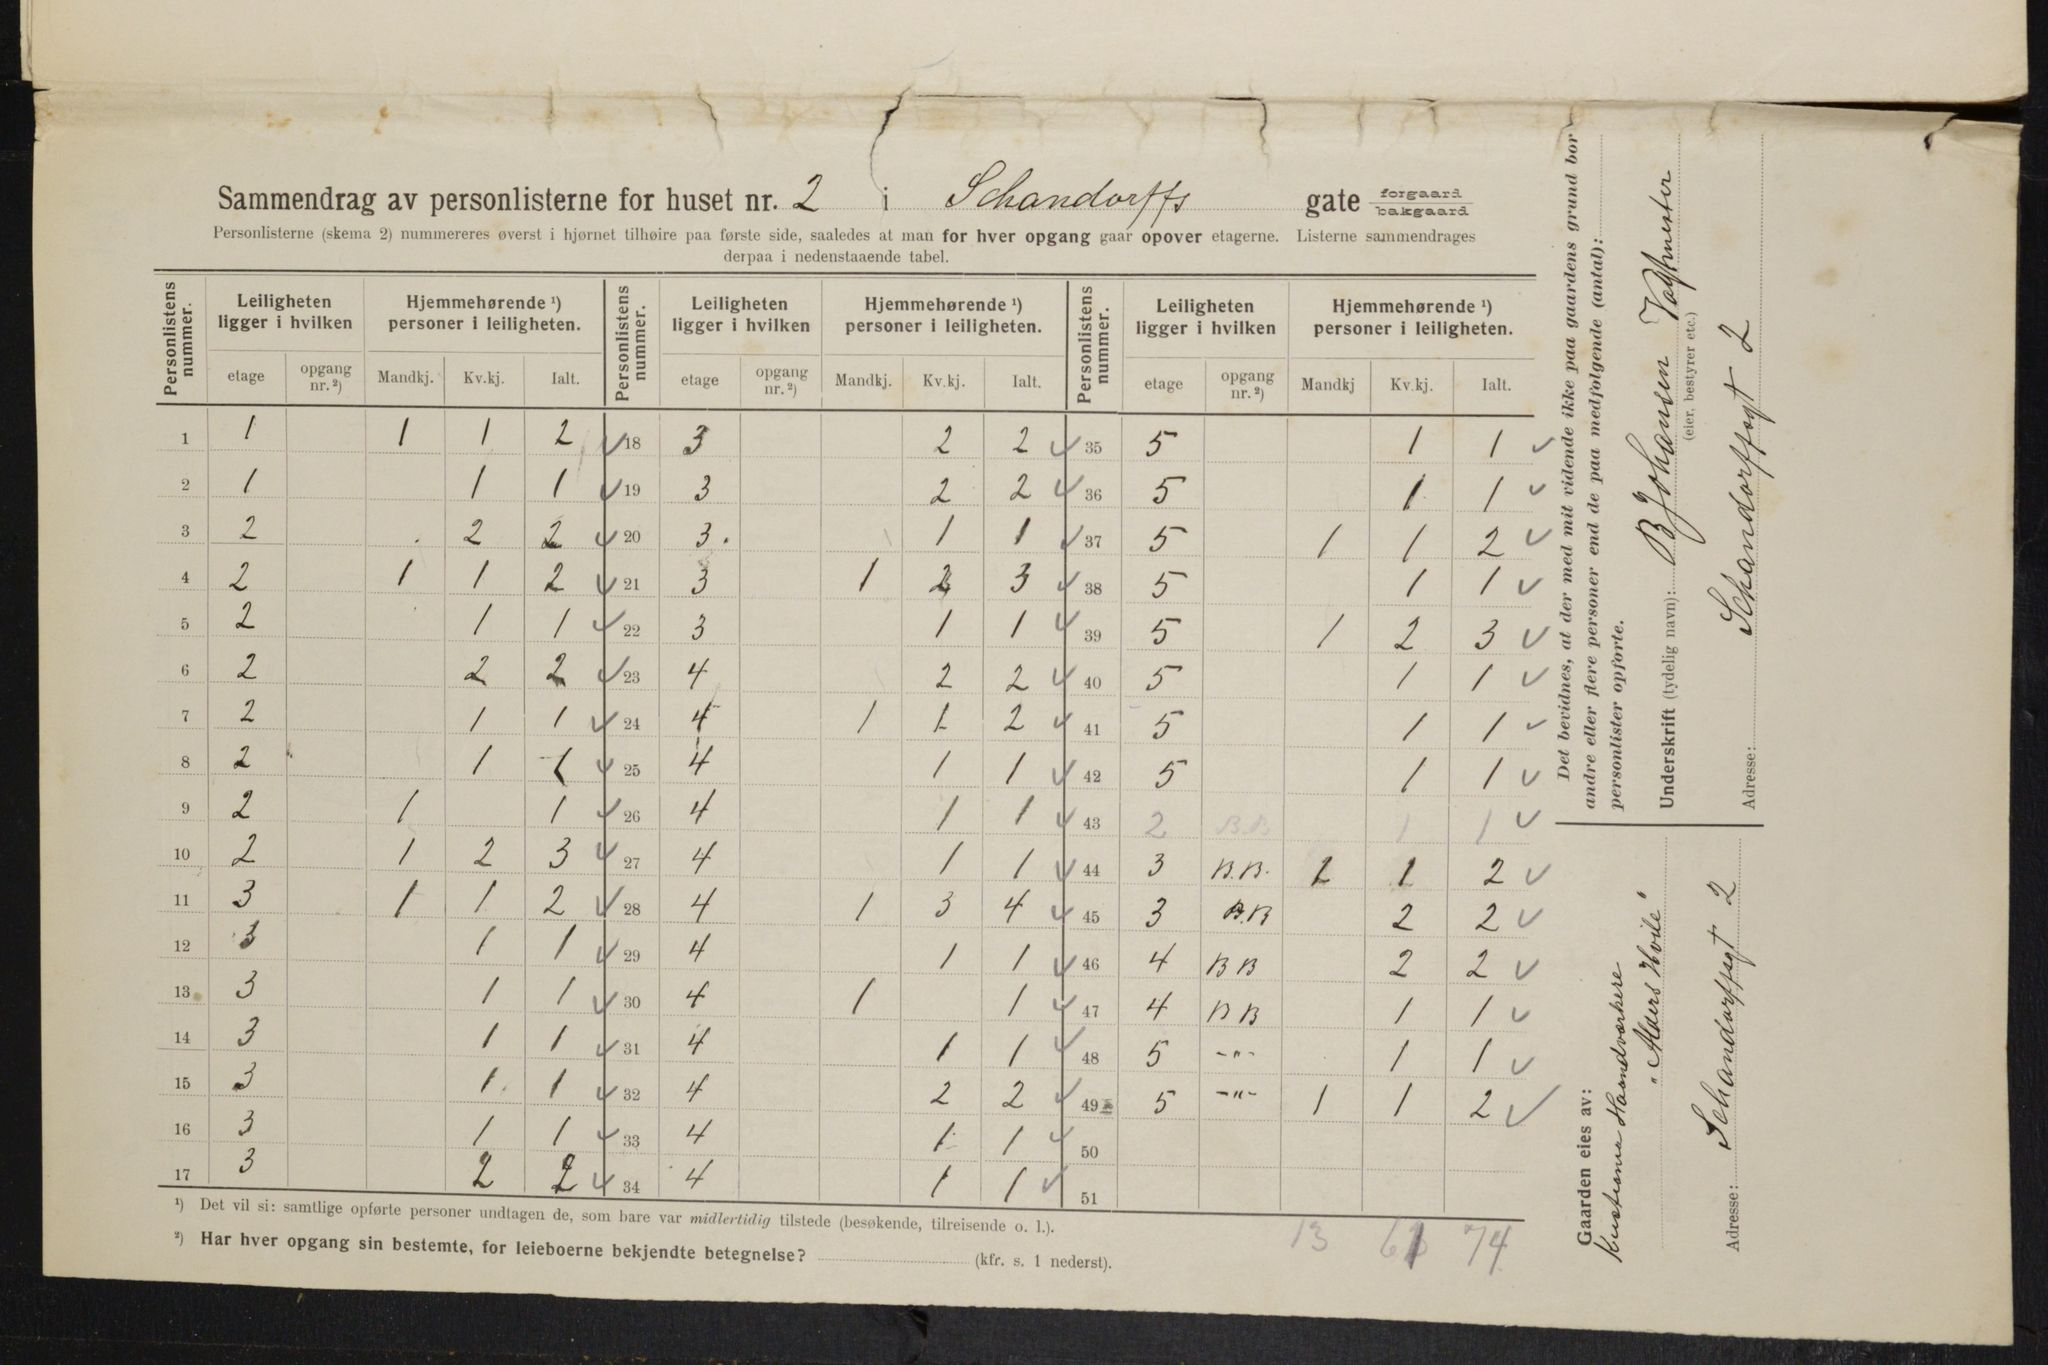 Sammendrag av personlisterne for huset nr. 2 i Schandorffs gate forgaard bakgaard
Personlisterne (skema 2) nummereres øverst i hjørnet tilhøire paa første side, saaledes at man for hver opgang gaar opover etagerne. Listerne sammendrages
derpaa i nedenstaaende tabel.
Personlistens nummer. Leiligheten ligger i hvilken Hjemmehørende ¹) personer i leiligheten. Personlistens nummer. Leiligheten ligger i hvilken Hjemmehørende ¹) personer i leiligheten. Personlistens nummer. Leiligheten ligger i hvilken Hjemmehørende ¹) personer i leiligheten.
etage opgang nr. ²) Mandkj. Kv.kj. Ialt. etage opgang nr. ²) Mandkj. Kv.kj. Ialt. etage opgang nr. ²) Mandkj Kv.kj. Ialt.
1 1 1 1 2 ✓ 18 3 2 2 ✓ 35 5 1 1 ✓
2 1 1 1 ✓ 19 3 2 2 ✓ 36 5 1 1 ✓
3 2 2 2 ✓ 20 3. 1 1 ✓ 37 5 1 1 2 ✓
4 2 1 1 2 ✓ 21 3 1 2 3 ✓ 38 5 1 1 ✓
5 2 1 1 ✓ 22 3 1 1 ✓ 39 5 1 2 3 ✓
6 2 2 2 ✓ 23 4 2 2 ✓ 40 5 1 1 ✓
7 2 1 1 ✓ 24 4 1 1 2 ✓ 41 5 1 1 ✓
8 2 1 1 ✓ 25 4 1 1 ✓ 42 5 1 1 ✓
9 2 1 1 ✓ 26 4 1 1 ✓ 43 2 B.B 1 1 ✓
10 2 1 2 3 ✓ 27 4 1 1 ✓ 44 3 B.B. 1 1 2 ✓
11 3 1 1 2 ✓ 28 4 1 3 4 ✓ 45 3 B.B 2 2 ✓
12 3 1 1 ✓ 29 4 1 1 ✓ 46 4 B B 2 2 ✓
13 3 1 1 ✓ 30 4 1 1 ✓ 47 4 B B 1 1 ✓
14 3 1 1 ✓ 31 4 1 1 ✓ 48 5 -"- 1 1 ✓
15 3 1 1 ✓ 32 4 2 2 ✓ 49 5 -"- 1 1 2 ✓
16 3 1 1 ✓ 33 4 1 1 ✓ 50
17 3 2 2 ✓ 34 4 1 1 ✓ 51
13 61 74
¹) Det vil si: samtlige opførte personer undtagen de, som bare var midlertidig tilstede (besøkende, tilreisende o. l.).
²) Har hver opgang sin bestemte, for leieboerne bekjendte betegnelse? (kfr. s. 1 nederst).
Det bevidnes, at der med mit vidende ikke paa gaardens grund bor
andre eller flere personer end de paa medfølgende (antal):
personlister opførte.
Underskrift (tydelig navn): B Johansen Vagtmester
(eier, bestyrer etc.)
Adresse: Schandorffsgt 2
Gaarden eies av:
Kristiania Haandverkere
"Alders Hvile"
Adresse: Schandorffsgt 2